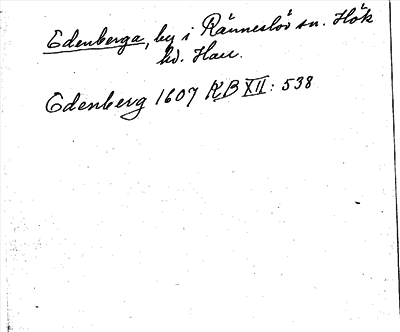 Edenberga, by i Ränneslöv sn. Hök
hd. Hall.
Edenberg 1607 KB XII: 538